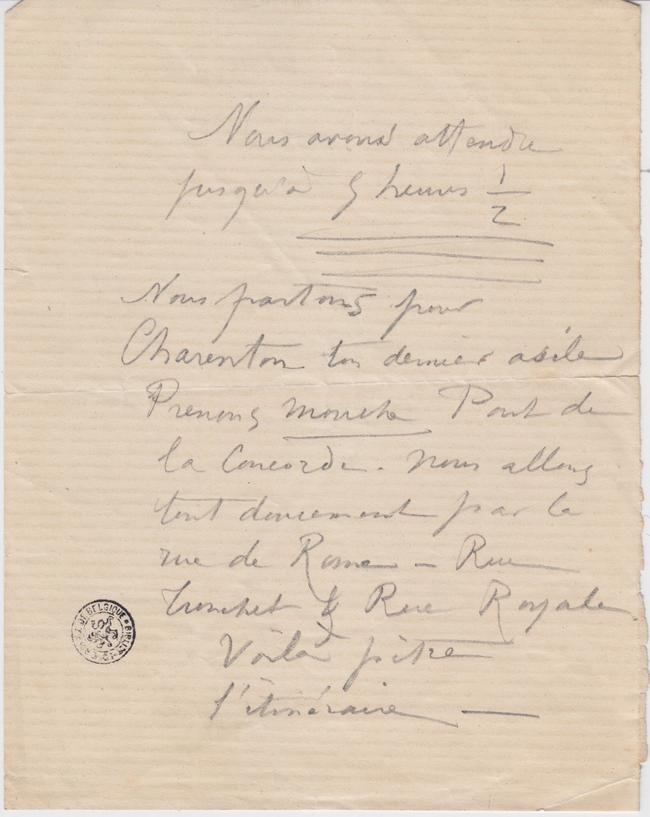 Nous avons attendre
jusqu'à 5 heures 1/2
Nous partons pour
Charenton ton dernier asile
Prenons mouche Pont de
la Concorde. nous allons
tout doucement par la
rue de Rome – Rue
Tronchet & Rue Royale
Voilà pître
l'itinéraire —
DE BELGIQUE